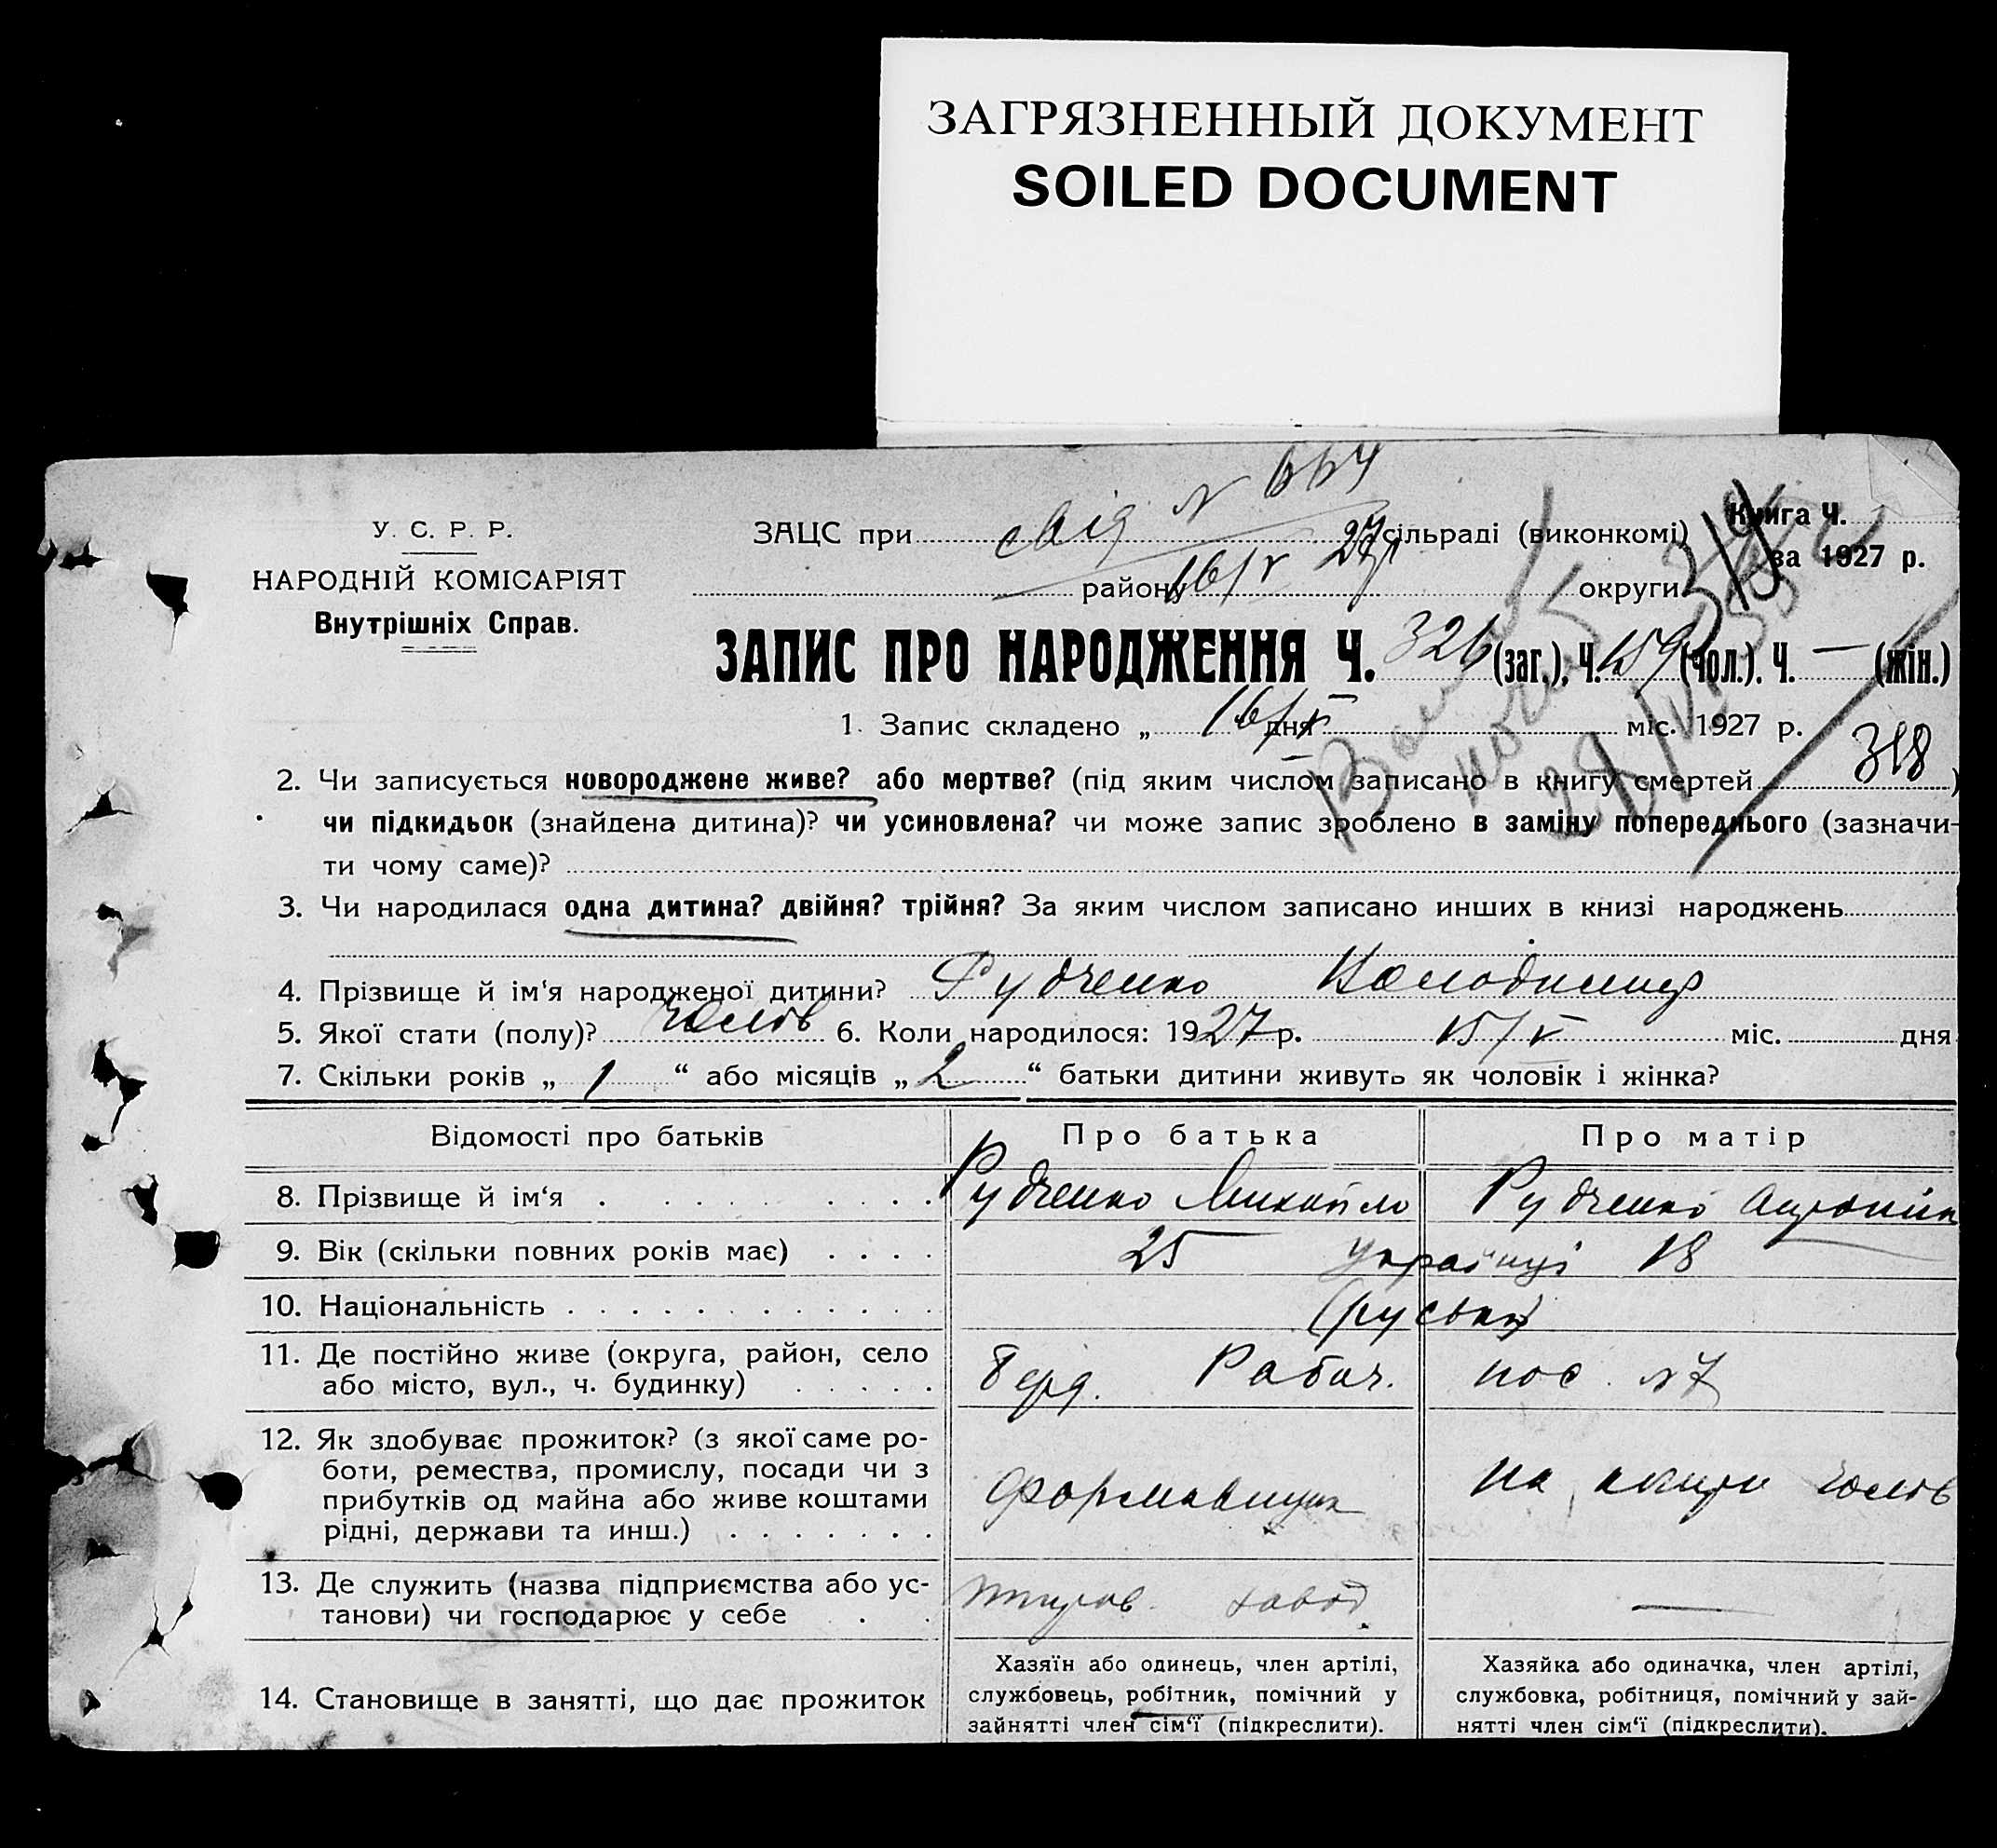 ЗАГРЯЗНЕННЫЙ ДОКУМЕНТ
SOILED DOCUMENT
У. С. Р. Р.
НАРОДНІЙ КОМІСАРІЯТ
Внутрішніх Справ.
свід N 664
ЗАЦС при сільраді (виконкомі)
Книга Ч.
за 1927 р.
району 16/V 27р округи
319
ЗАПИС ПРО НАРОДЖЕННЯ Ч. 326 (заг.), Ч. 159 (чол.). Ч. — (жін.)
1. Запис складено „ 16/V дня міс. 1927 р.
318
2. Чи записується новороджене живе? або мертве? (під яким числом записано в книгу смертей )
чи підкидьок (знайдена дитина)? чи усиновлена? чи може запис зроблено в заміну попереднього (зазначи-
ти чому саме)?
3. Чи народилася одна дитина? двійня? трійня? За яким числом записано инших в книзі народжень
4. Прізвище й ім‘я народженої дитини? Рудченко Володимир
5. Якої стати (полу)? чолов 6. Коли народилося: 1927 р. 15/V міс. дня
7. Скільки років „ 1 “ або місяців „ 2 “ батьки дитини живуть як чоловік і жінка?
Відомості про батьків Про батька Про матір
8. Прізвище й ім‘я Рудченко Михайло Рудченко
9. Вік (скільки повних років має) 25 українці 18
10. Національність (руські)
11. Де постійно живе (округа, район, село
або місто, вул., ч. будинку) Берд. Рабоч. пос. N 7
12. Як здобуває прожиток? (з якої саме ро-
боти, ремества, промислу, посади чи з
прибутків од майна або живе коштами
рідні, держави та инш.)
Формавщик
на чолов
13. Де служить (назва підприємства або ус-
танови) чи господарює у себе
завод —
14. Становище в занятті, що дає прожиток
Хазяїн або одинець, член артілі,
службовець, робітник, помічний у
зайнятті член сім‘ї (підкреслити).
Хазяйка або одиначка, член артілі,
службовка, робітниця, помічний у зай-
нятті член сім‘ї (підкреслити).